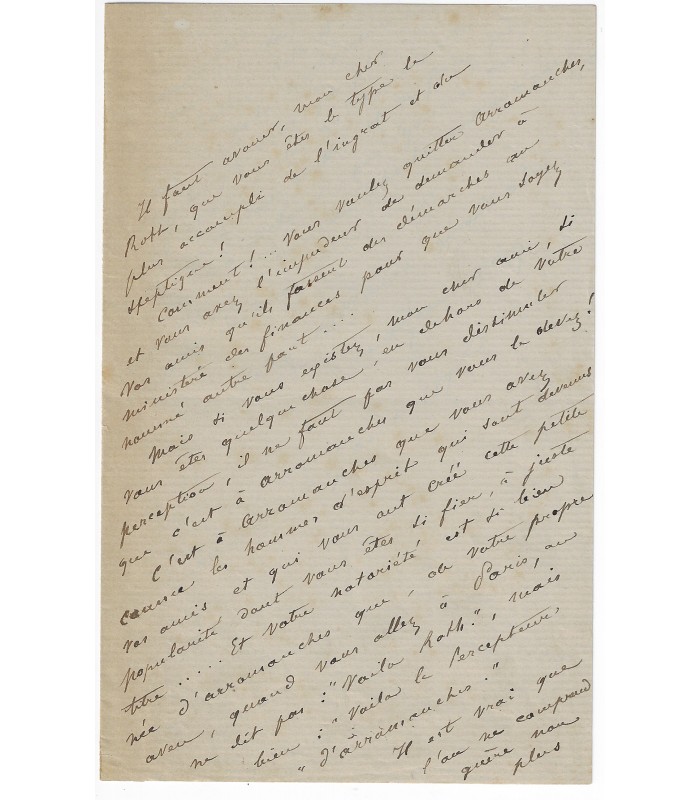 Il faut avouer, mon cher
Roth, que vous êtes le type le
plus accompli de l'ingrat et du
skeptique!
Comment!... Vous voulez quitter Arromanches,
et vous avez l'impudeur de demander à
vos amis qu'ils fassent des démarches au
ministère des finances pour que vous soyez
nommé autre part....
Mais si vous existez, mon cher ami, si
vous êtes quelque chose en dehors de votre
perception, il ne faut pas vous dissimuler
que c'est à Arromanches que vous le devez!
C'est à Arromanches que vous avez
connu les hommes d'esprit qui sont devenus
vos amis et qui vous ont créé cette petite
popularité dont vous êtes si fier, à juste
titre..... Et votre notoriété est si bien
née d'arromanches que, de votre propre
aveu, quand vous allez à Paris, on
ne dit pas: "Voila Roth", mais
bien: "Voila le Percepteur
"d'arromanches."
Il est vrai que
l'on ne comprend
guère non
plus